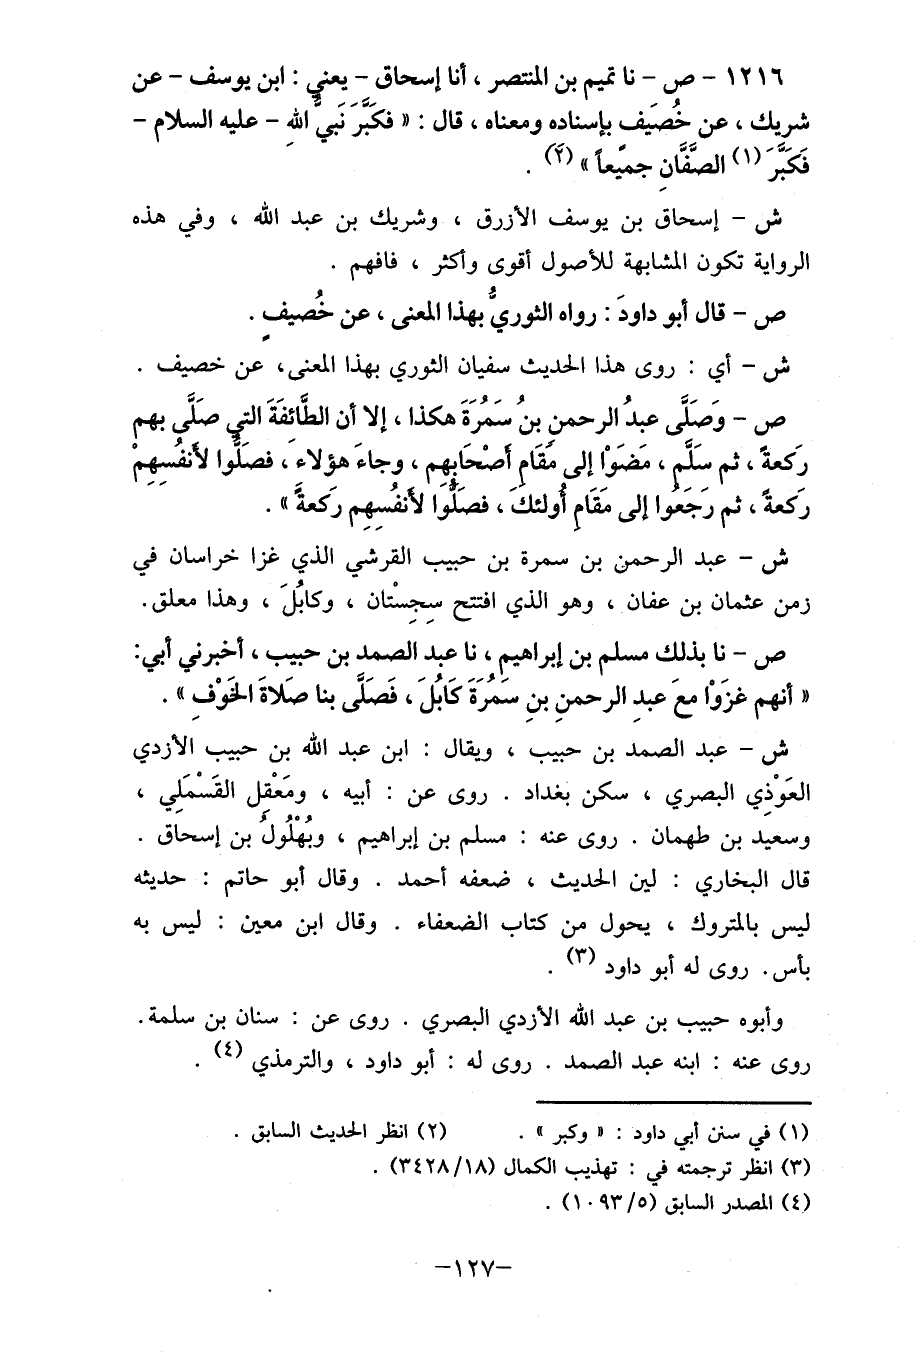 ١٢١٦ - ص - نا تميم بن المنتصر ، أنا إسحاق - يعني : ابن يوسف - عن
شريك ، عن خُصَيفٍ بإسناده ومعناه ، قال : « فكَبَّرَ نَبيُّ اللهِ - عليه السلام -
فَكَبَّرَ (١) الصَّفَّانِ جميعاً » (٢) .
ش - إسحاق بن يوسف الأزرق ، وشريك بن عبد الله ، وفي هذه
الرواية تكون المشابهة للأصول أقوى وأكثر ، فافهم .
ص - قال أبو داودَ : رواه الثوريُّ بهذا المعنى ، عن خُصيفٍ .
ش - أي : روى هذا الحديث سفيان الثوري بهذا المعنى، عن خصيف .
ص - وَصَلَّى عبدُ الرحمنِ بنُ سَمُرَةَ هكذا ، إلا أن الطَّائِفَةَ التي صَلَّى بهم
رَكعةً ، ثم سَلَّم ، مَضَوْا إلى مَقَامِ أصْحَابِهم ، وجاءَ هؤلاء ، فصلَّوا لأَنفُسِهِمْ
رَكعةً ، ثم رَجَعُوا إلى مَقَامِ أُولئكَ ، فصلُّوا لأَنفُسِهِم رَكعةً » .
ش - عبد الرحمن بن سمرة بن حبيب القرشي الذي غزا خراسان في
زمن عثمان بن عفان ، وهو الذي افتتح سِجِسْتان ، وكابُلَ ، وهذا معلق.
ص - نا بذلك مسلم بن إبراهيم ، نا عبد الصمد بن حبيب ، أخبرني أبي:
« أنهم غزَوْا معَ عبدِ الرحمنِ بنِ سَمُرَةَ كَابُلَ ، فَصَلَّى بنا صَلاةَ الخَوْفِ » .
ش - عبد الصمد بن حبيب ، ويقال : ابن عبد الله بن حبيب الأزدي
العَوْذِي البصري ، سكن بغداد . روى عن : أبيه ، ومَعْقِل القَسْمَلي ،
وسعيد بن طهمان . روى عنه : مسلم بن إبراهيم ، وبُهْلُولُ بن إسحاق .
قال البخاري : لين الحديث ، ضعفه أحمد . وقال أبو حاتم : حديثه
ليس بالمتروك ، يحول من كتاب الضعفاء . وقال ابن معين : ليس به
بأس. روى له أبو داود (٣) .
وأبوه حبيب بن عبد الله الأزدي البصري . روى عن : سنان بن سلمة.
روى عنه : ابنه عبد الصمد . روى له : أبو داود ، والترمذي (٤) .
(١) في سنن أبي داود : « وكبر » . (٢) انظر الحديث السابق .
(٣) انظر ترجمته في : تهذيب الكمال (١٨/٣٤٢٨) .
(٤) المصدر السابق (٥/١٠٩٣) .
-١٢٧-